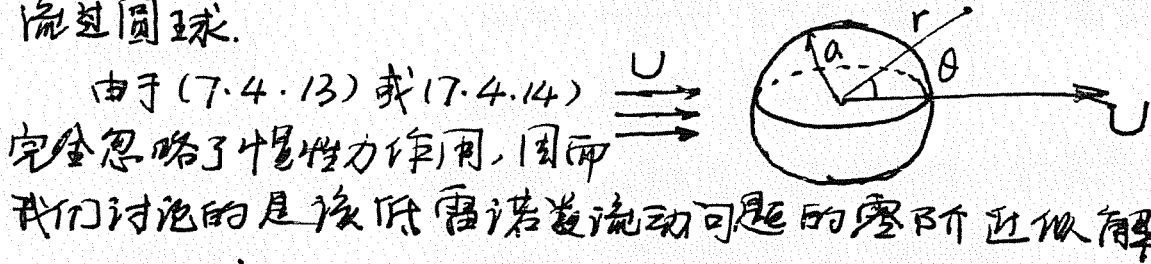 流过圆球.
由于(7·4·13)或(7·4·14)
完全忽略了惯性力作用,因而
我们讨论的是该低雷诺数流动问题的零阶近似解
U
a
r
θ
U